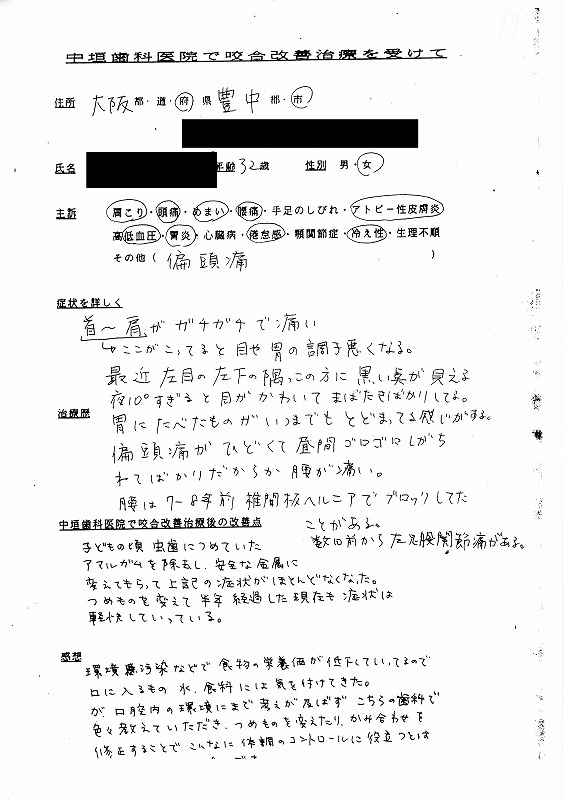 中垣歯科医院で咬合改善治療を受けて
住所 大阪 都・道・府・県 豊中 郡・市
氏名 年齢 32歳 性別 男・女
主訴 肩こり・頭痛・めまい・腰痛・手足のしびれ・アトピー性皮膚炎
高低血圧・胃炎・心臓病・倦怠感・顎関節症・冷え性・生理不順
その他( 偏頭痛 )
症状を詳しく
首〜肩がガチガチで痛い
ここがこってると目や胃の調子悪くなる。
最近 左目の左下の隅っこの方に黒い点が見える
夜10°すぎると目がかわいてまばたきばかりしてる。
治療歴
胃にたべたものがいつまでもとどまってる感じがする。
偏頭痛がひどくて昼間ゴロゴロしがち
ねてばかりだからか腰が痛い。
腰は7〜8年前 椎間板ヘルニアでブロックしてた
ことがある。
数日前から左足股関節痛がある。
中垣歯科医院で咬合改善治療後の改善点
子どもの頃 虫歯につめていた
アマルガムを除去し、安全な金属に
変えてもらって上記の症状がほとんどなくなった。
つめものを変えて半年経過した現在も症状は
軽快していっている。
感想
環境悪汚染などで食物の栄養価が低下していってるので
口に入るもの 水、食料には気を付けてきた。
が口腔内の環境にまで考えが及ばず こちらの歯科で
色々教えていただき、つめものを変えたり、かみ合わせを
修正することでこんなに体調のコントロールに役立つとは